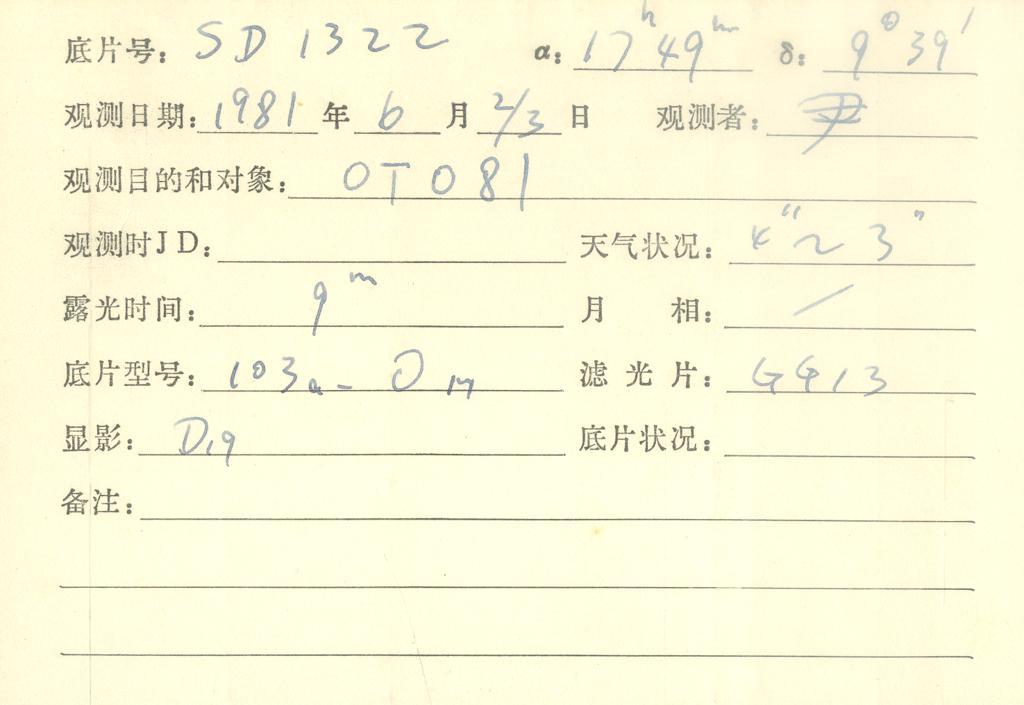 底片号: SD 1322 α: 17h 49m δ: 9° 39′
观测日期: 1981 年 6 月 2/3 日 观测者: 尹
观测目的和对象: OT 081
观测时JD: 天气状况: 4″~3″
露光时间: 9m 月 相: /
底片型号: 103a-O 滤光片: GG13
显影: D19 底片状况:
备注: